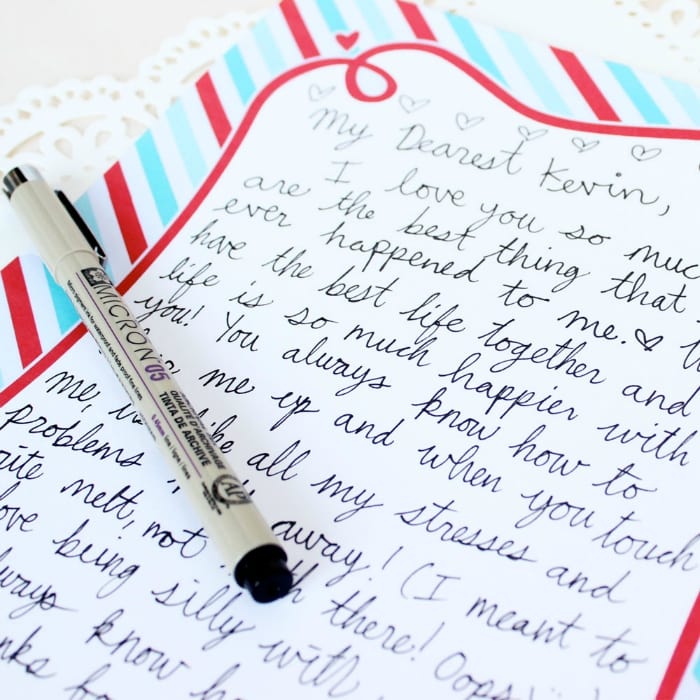 My Dearest Kevin,
I love you so much
are the best thing that
ever happened to me. ♥
have the best life together and
life is so much happier with
you! You always know how to
me up and when you touch
me, like all my stresses and
problems away! (I meant to
melt, not there! Oops
love being silly with
always know
MICRON 05
QUALITÉ D'ARCHIVAGE
TINTA DE ARCHIVE
0.45mm
AP